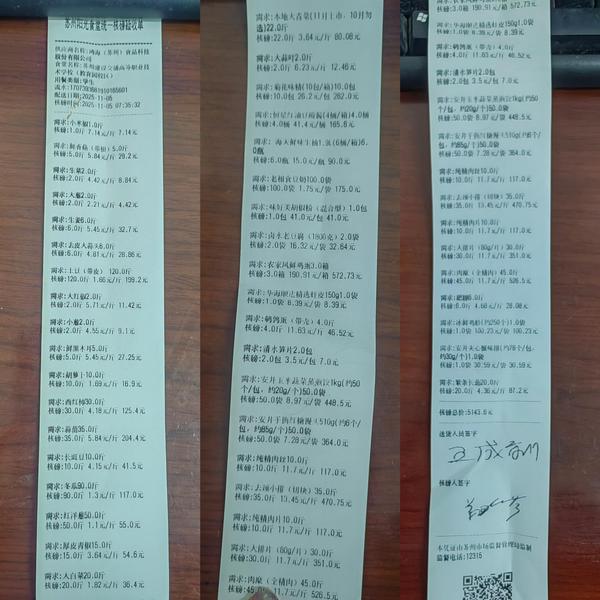 苏州阳光食堂统一核磅验收单
供应商名称:鸿海(苏州)食品科技
股份有限公司
食堂名称:苏州建设交通高等职业技
术学校(教育园校区)
用餐类型:学生
配送日期:2025-11-05
核磅时间:2025-11-05 07:35:32
需求:小米椒1.0斤
核磅:1.0斤 7.14元/斤 7.14元
需求:鲜香菇(带根)5.0斤
核磅:5.0斤 5.84元/斤 29.2元
需求:生菜2.0斤
核磅:2.0斤 4.42元/斤 8.84元
需求:大葱2.0斤
核磅:2.0斤 2.21元/斤 4.42元
需求:生姜6.0斤
核磅:6.0斤 5.45元/斤 32.7元
需求:去皮大蒜头6.0斤
核磅:6.0斤 4.81元/斤 28.86元
需求:土豆(带皮)120.0斤
核磅:120.0斤 1.66元/斤 199.2元
需求:大红椒2.0斤
核磅:2.0斤 5.71元/斤 11.42元
需求:小葱2.0斤
核磅:2.0斤 4.55元/斤 9.1元
需求:鲜黑木耳5.0斤
核磅:5.0斤 5.45元/斤 27.25元
需求:胡萝卜10.0斤
核磅:10.0斤 1.69元/斤 16.9元
需求:西红柿30.0斤
核磅:30.0斤 4.18元/斤 125.4元
需求:蒜苗35.0斤
核磅:35.0斤 5.84元/斤 204.4元
需求:长豇豆10.0斤
核磅:10.0斤 4.15元/斤 41.5元
需求:冬瓜90.0斤
核磅:90.0斤 1.3元/斤 117.0元
需求:红洋葱50.0斤
核磅:50.0斤 1.1元/斤 55.0元
需求:厚皮青椒15.0斤
核磅:15.0斤 3.64元/斤 54.6元
需求:大白菜20.0斤
核磅:20.0斤 1.82元/斤 36.4元
需求:本地大青菜(11月上市,10月勿
选)22.0斤
核磅:22.0斤 3.64元/斤 80.08元
需求:大蒜叶2.0斤
核磅:2.0斤 6.23元/斤 12.46元
需求:菊花味精(10包/箱)10.0包
核磅:10.0包 26.2元/包 262.0元
核磅:4.0桶 41.4元/桶 165.6元
核磅:6.0瓶 15.0元/瓶 90.0元
需求:老相食豆奶100.0袋
核磅:100.0袋 1.75元/袋 175.0元
需求:味好美胡椒粉(混合型)1.0包
核磅:1.0包 41.0元/包 41.0元
需求:卤水老豆腐(1800克)2.0袋
核磅:2.0袋 16.32元/袋 32.64元
需求:农家风鲜鸡蛋3.0箱
核磅:3.0箱 190.91元/箱 572.73元
需求:华海顺达精选虾皮150g1.0袋
核磅:1.0袋 8.39元/袋 8.39元
需求:鹌鹑蛋(带壳)4.0斤
核磅:4.0斤 11.63元/斤 46.52元
需求:清水笋片2.0包
核磅:2.0包 3.5元/包 7.0元
需求:安井玉米蔬菜蒸煎饺1kg(约50
个/包,约20g/个)50.0袋
核磅:50.0袋 8.97元/袋 448.5元
需求:安井手挤红糖馒头510g(约6个/
包,约85g/个)50.0袋
核磅:50.0袋 7.28元/袋 364.0元
需求:纯精肉丝10.0斤
核磅:10.0斤 11.7元/斤 117.0元
需求:去颈小排(切块)35.0斤
核磅:35.0斤 13.45元/斤 470.75元
需求:纯精肉片10.0斤
核磅:10.0斤 11.7元/斤 117.0元
需求:大排片(80g/片)30.0斤
核磅:30.0斤 11.7元/斤 351.0元
需求:肉糜(全精肉)45.0斤
11.7元/斤 526.5元
核磅:3.0箱 190.91元/箱 572.73元
需求:华海顺达精选虾皮150g1.0袋
核磅:1.0袋 8.39元/袋 8.39元
需求:鹌鹑蛋(带壳)4.0斤
核磅:4.0斤 11.63元/斤 46.52元
需求:清水笋片2.0包
核磅:2.0包 3.5元/包 7.0元
需求:安井玉米蔬菜蒸煎饺1kg(约50
个/包,约20g/个)50.0袋
核磅:50.0袋 8.97元/袋 448.5元
需求:安井手挤红糖馒头510g(约6个/
包,约85g/个)50.0袋
核磅:50.0袋 7.28元/袋 364.0元
需求:纯精肉丝10.0斤
核磅:10.0斤 11.7元/斤 117.0元
需求:去颈小排(切块)35.0斤
核磅:35.0斤 13.45元/斤 470.75元
需求:纯精肉片10.0斤
核磅:10.0斤 11.7元/斤 117.0元
需求:大排片(80g/片)30.0斤
核磅:30.0斤 11.7元/斤 351.0元
需求:肉糜(全精肉)45.0斤
核磅:45.0斤 11.7元/斤 526.5元
核磅:6.0斤 4.68元/斤 28.08元
需求:冰鲜鸡 (约250个)1.0袋
核磅:1.0袋 100.23元/袋 100.23元
约30g/个)1.0袋
核磅:1.0袋 30.59元/袋 30.59元
核磅:20.0斤 4.36元/斤 87.2元
核磅总价:5143.6元
送货人员签字
核磅人签字
本凭证由苏州市场监督管理局监制
监督电话:12315